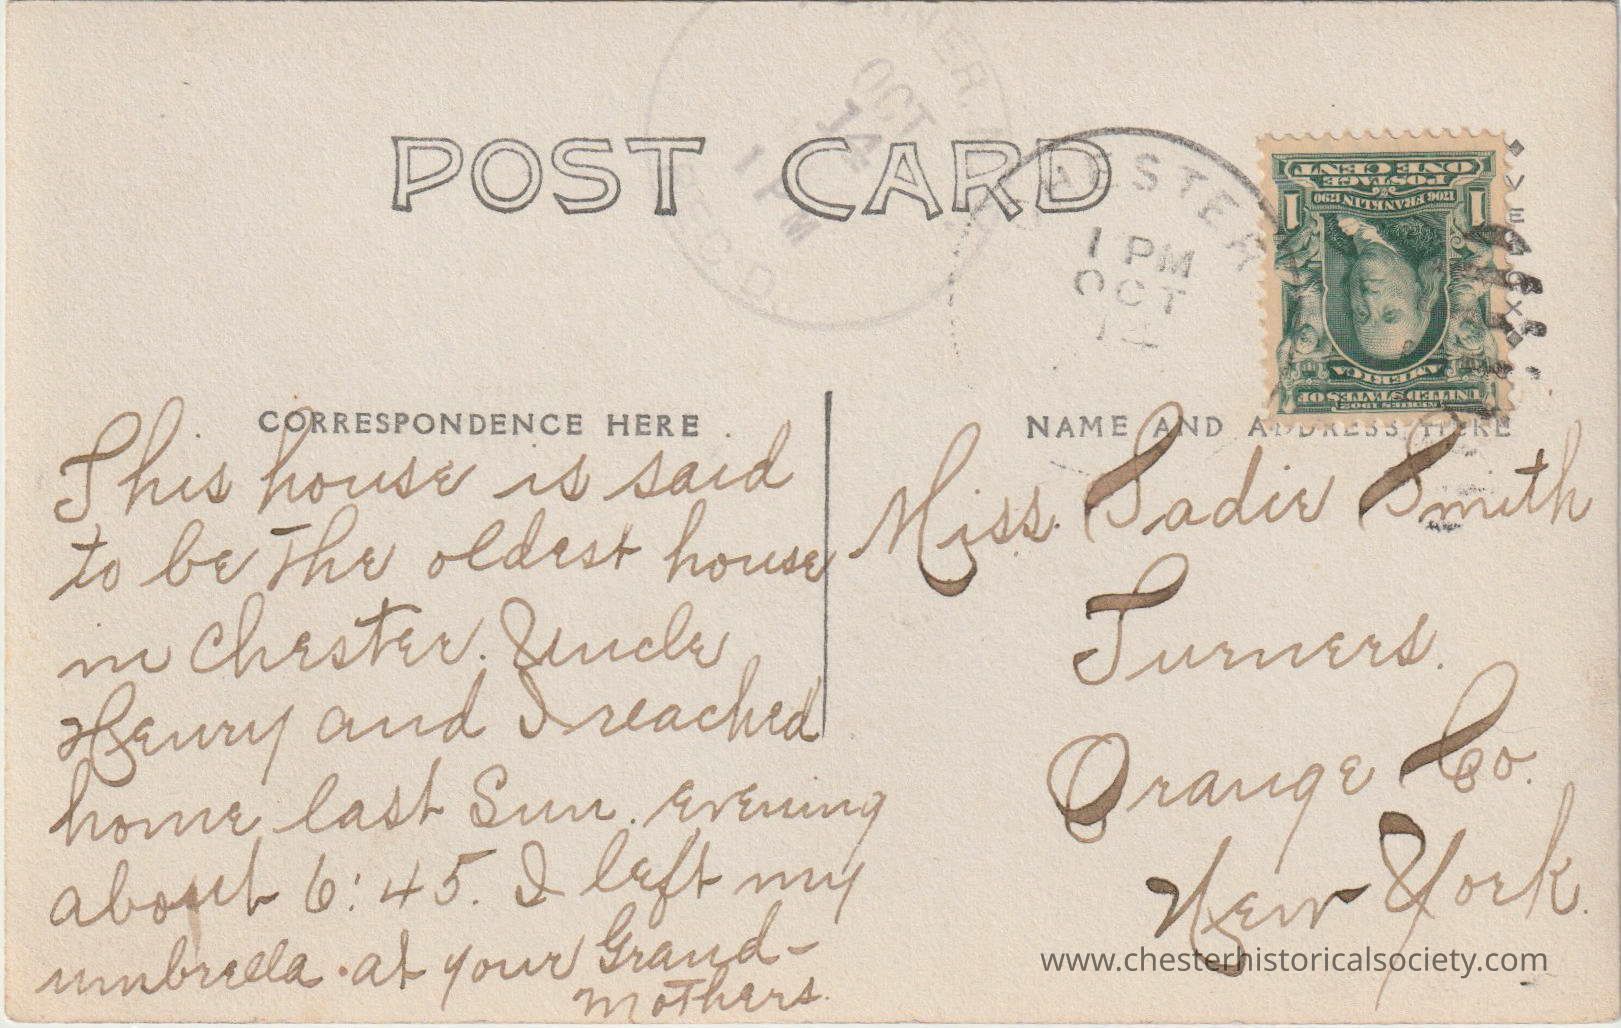 POST CARD
OCT
14
1 PM
REC'D.
CHESTER
1 PM
OCT
14
ONE CENT
POSTAGE
1706 FRANKLIN 1790
1 1
UNITED STATES OF
AMERICA
SERIES 1902
VELOX
CORRESPONDENCE HERE
This house is said
to be the oldest house
in Chester. Uncle
Henry and I reached
home last Sun. evening
about 6:45. I left my
umbrella at your Grand-
mothers.
NAME AND ADDRESS HERE
Miss. Sadie Smith
Turners.
Orange Co.
New York.
www.chesterhistoricalsociety.com